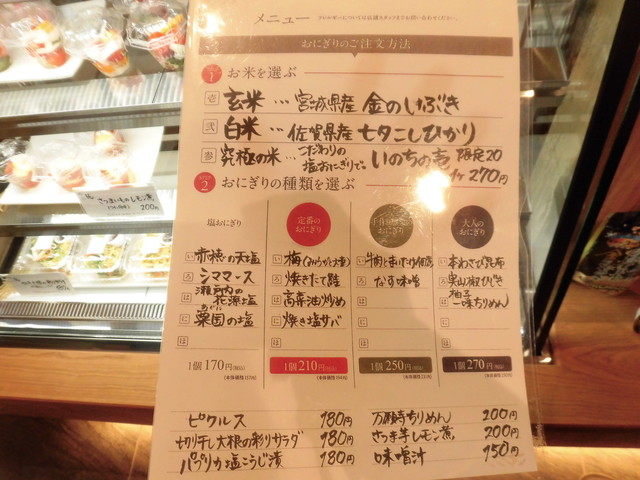 メニュー
おにぎりのご注文方法
1 お米を選ぶ
壱 玄米…宮城県産 金のいぶき
弐 白米…佐賀県産 七夕こしひかり
参 究極の米…こだわりの塩おにぎりで。いのちの壱 限定20
1ヶ270円
2 おにぎりの種類を選ぶ
塩おにぎり
い 赤穂の天塩
ろ シママース
は 瀬戸内の花源塩
に 粟国の塩
ほ
1個170円(税込)
定番のおにぎり
い 梅
ろ 焼きたて鮭
は 高菜油炒め
に 焼き塩サバ
ほ
1個210円(税込)
い
ろ なす味噌
は
に
ほ
1個250円(税込)
大人のおにぎり
い 本わさび昆布
ろ 実山椒ひじき
は 柚子一味ちりめん
に
ほ
1個270円(税込)
ピクルス 180円
切り干し大根の彩りサラダ 180円
パプリカ塩こうじ漬 180円
万願寺ちりめん 200円
さつま芋レモン煮 200円
味噌汁 150円
さつまいものレモン煮
200円